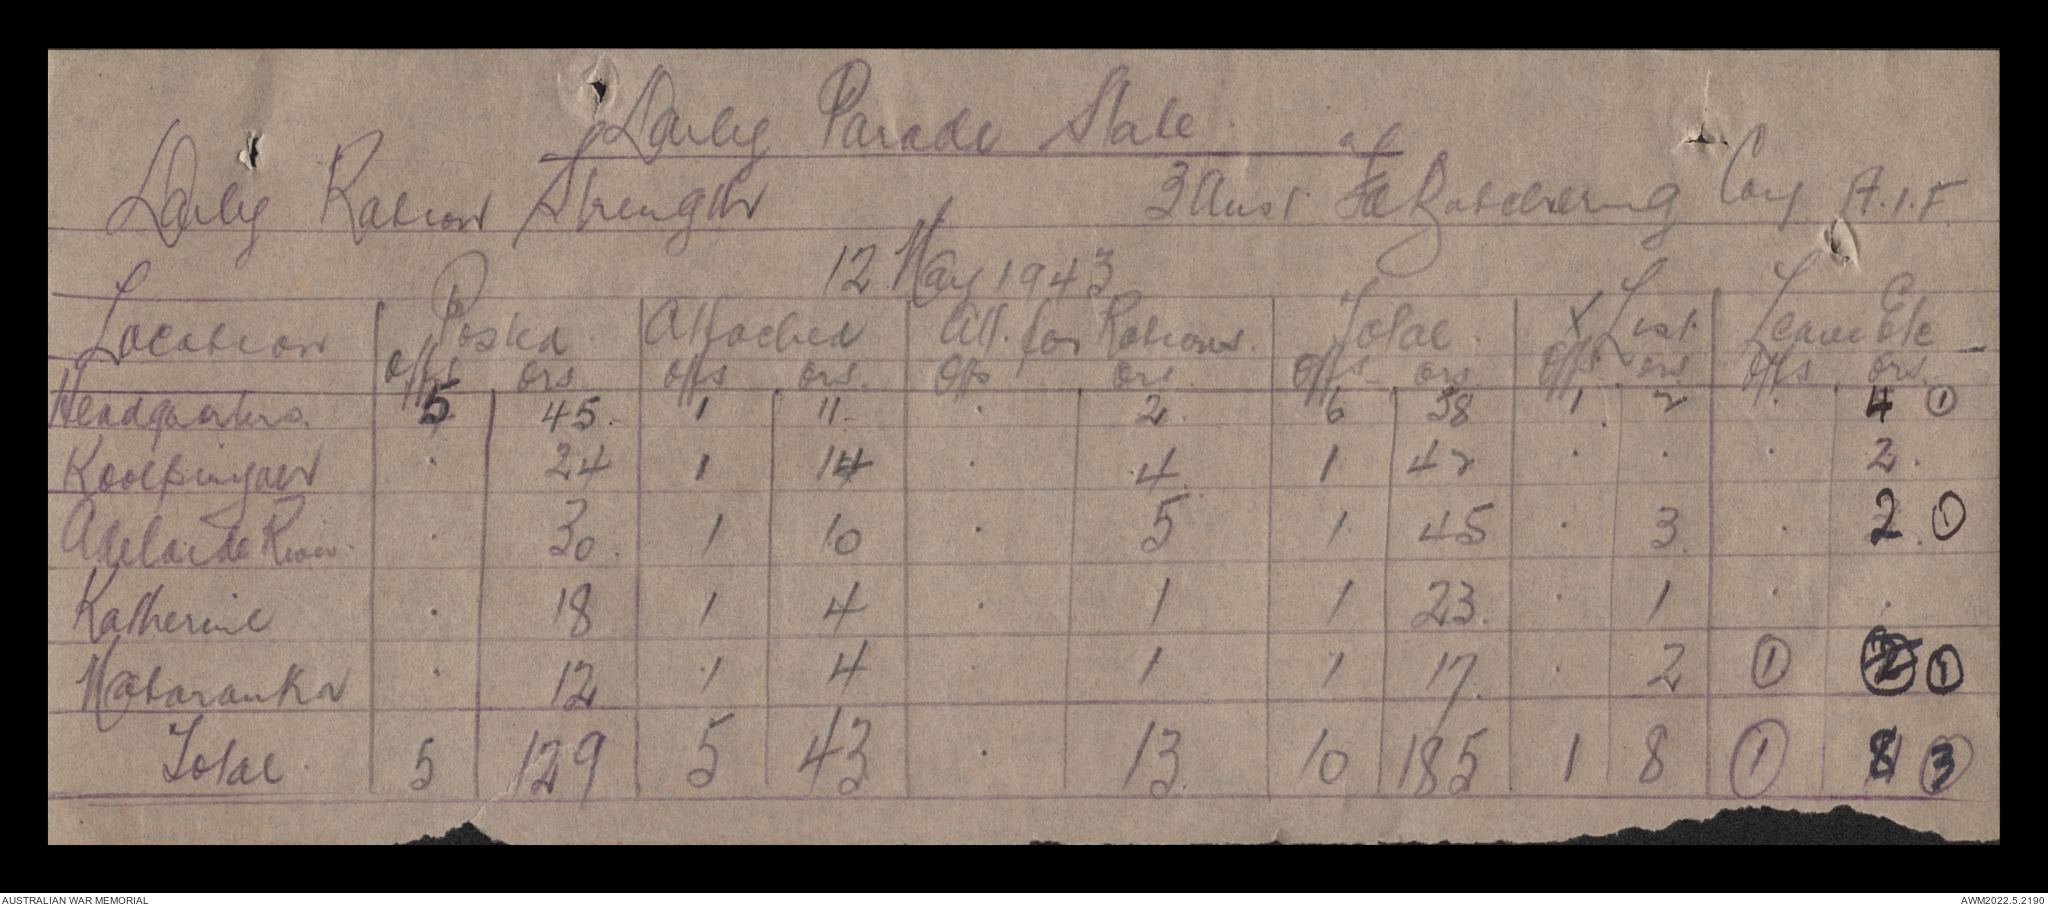 Daily Parade State
Daily Ration Strength 3 Aust. Fd Butchering Coy. A.I.F.
12 May 1943
Location Posted Attached Att. for Rations. Total. X List. Leave Etc
Offs ors. Offs ors. Offs ors. Offs ors Offs ors. Offs ors.
Headquarters. 5 45. 1 11 . 2. 6 58 1 2 . 4 ①
Koolpinyah . 24 1 14 . 4. 1 42 . . . 2.
Adelaide River. . 30. 1 10 . 5 1 45 . 3. . 2. ①
Katherine . 18 1 4 . 1 1 23. . 1 . .
Mataranka . 12 1 4 1 1 17. . 2 ① ①
Total. 5 129 5 43 . 13. 10 185 1 8 ① 8 ③
AUSTRALIAN WAR MEMORIAL AWM2022.5.2190